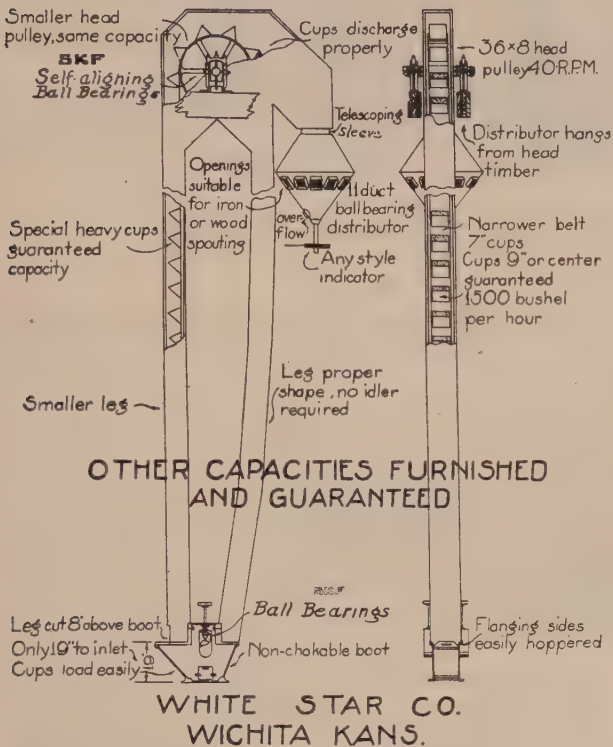 Smaller head
pulley, same capacity
SKF
Self-aligning
Ball Bearings
Cups discharge
properly
36×8 head
pulley 40 R.P.M.
Telescoping
sleeve
Distributor hangs
from head
timber
Openings
suitable
for iron
or wood
spouting
11 duct
ball bearing
distributor
over-
flow
Any style
indicator
Special heavy cups
guaranteed
capacity
Narrower belt
7" cups
Cups 9" or center
guaranteed
1500 bushel
per hour
Leg proper
shape, no idler
required
Smaller leg
OTHER CAPACITIES FURNISHED
AND GUARANTEED
Ball Bearings
Leg cut 8' above boot
Only 19" to inlet
Cups load easily
19"
Non-chokable boot
Flanging sides
easily hoppered
WHITE STAR CO.
WICHITA KANS.